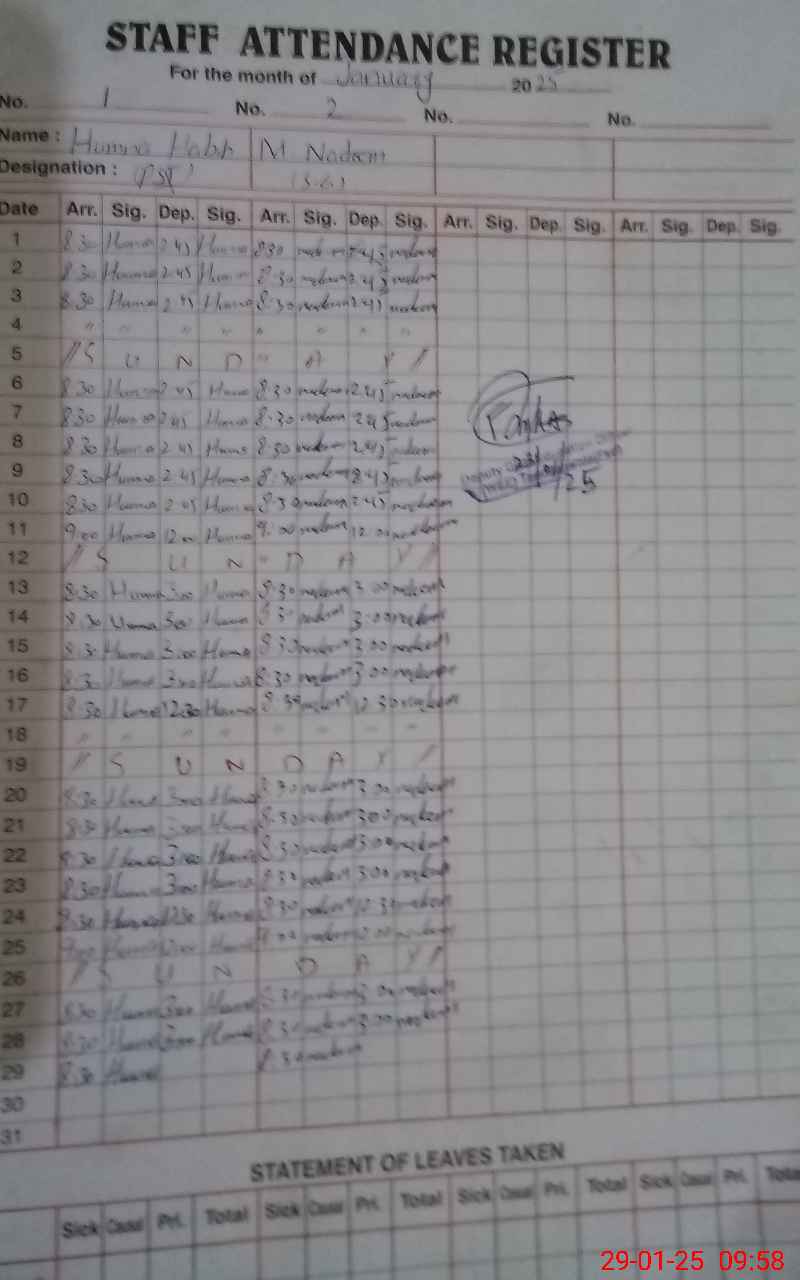 STAFF ATTENDANCE REGISTER
For the month of January 2025
No. 1 No. 2 No. No.
Name : Huma Habib M Nadeem
Designation : PST (S.G)
Date Arr. Sig. Dep. Sig. Arr. Sig. Dep. Sig. Arr. Sig. Dep. Sig. Arr. Sig. Dep. Sig.
1 8 30 Huma 2 45 Huma 8 30 nadeem 2 45 nadeem
2 8 30 Huma 2 45 Huma 8 30 nadeem 2 45 nadeem
3 8.30 Huma 2 45 Huma 8.30 nadeem 2 45 nadeem
4 " " " " " " " "
5 // S U N D A Y //
6 8 30 Huma 2 45 Huma 8.30 nadeem 2.45 nadeem
7 8 30 Huma 2 45 Huma 8.30 nadeem 2 45 nadeem
8 8.30 Huma 2 45 Huma 8 30 nadeem 2.45 nadeem
9 8.30 Huma 2 45 Huma 8.30 nadeem 8 45 nadeem
10 8 30 Huma 2 45 Huma 8.30 nadeem 2 45 nadeem
11 9.00 Huma 12 00 Huma 9.00 nadeem 12.00 nadeem
12 // S U N D A Y //
13 8.30 Huma 3 00 Huma 8.30 nadeem 3 00 nadeem
14 8.30 Huma 3 00 Huma 8 30 nadeem 3.00 nadeem
15 8.30 Huma 3.00 Huma 8 30 nadeem 3.00 nadeem
16 8.30 Huma 3 00 Huma 8.30 nadeem 3 00 nadeem
17 8.30 Huma 12 30 Huma 8.30 nadeem 12 30 nadeem
18 " " " " " " " "
19 // S U N D A Y /
20 8.30 Huma 3 00 Huma 8 30 nadeem 3 00 nadeem
21 8.30 Huma 3 00 Huma 8.30 nadeem 3 00 nadeem
22 8 30 Huma 3 00 Huma 8 30 nadeem 3 00 nadeem
23 8.30 Huma 3 00 Huma 8 30 nadeem 3 00 nadeem
24 8.30 Huma 12 30 Huma 8 30 nadeem 12 30 nadeem
25 9.00 Huma 12 00 Huma 9.00 nadeem 12 00 nadeem
26 // S U N D A Y //
27 8.30 Huma 3 00 Huma 8 30 nadeem 3 00 nadeem
28 8.30 Huma 3 00 Huma 8.30 nadeem 3.00 nadeem
29 8.30 Huma 8.30 nadeem
30
31
STATEMENT OF LEAVES TAKEN
Sick Casual Pri. Total Sick Casual Pri. Total Sick Casual Pri. Total Sick Casual Pri. Total
29-01-25 09:58